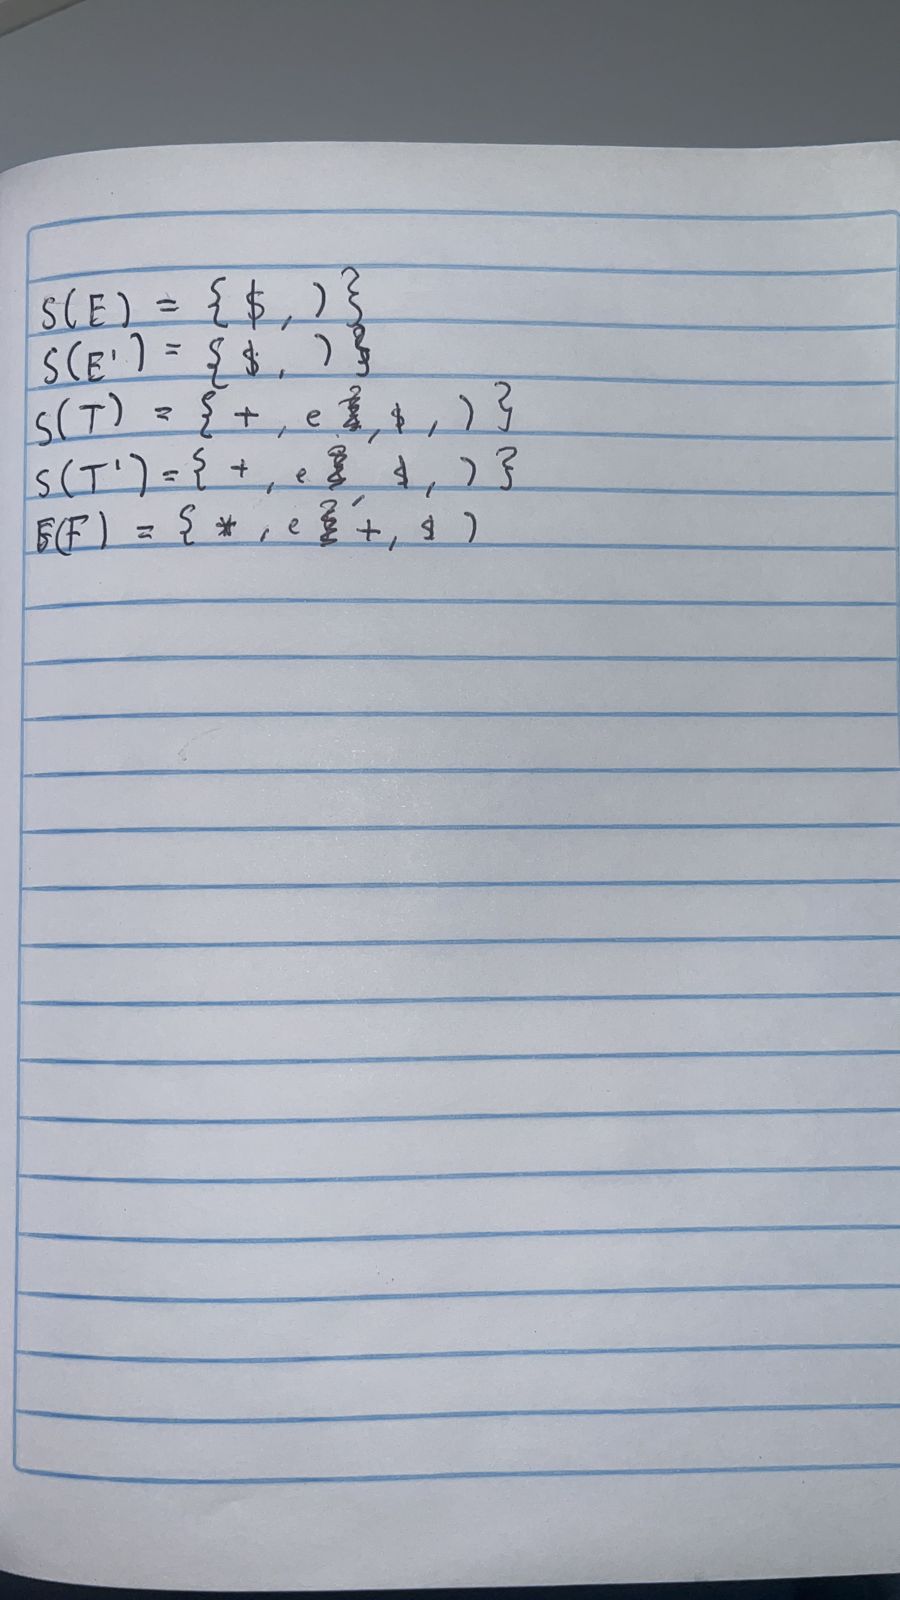 S(E) = { $, ) }
S(E') = { $, ) }
S(T) = { +, e , $, ) }
S(T') = { +, e , $, ) }
F(F) = { *, e , +, $ )